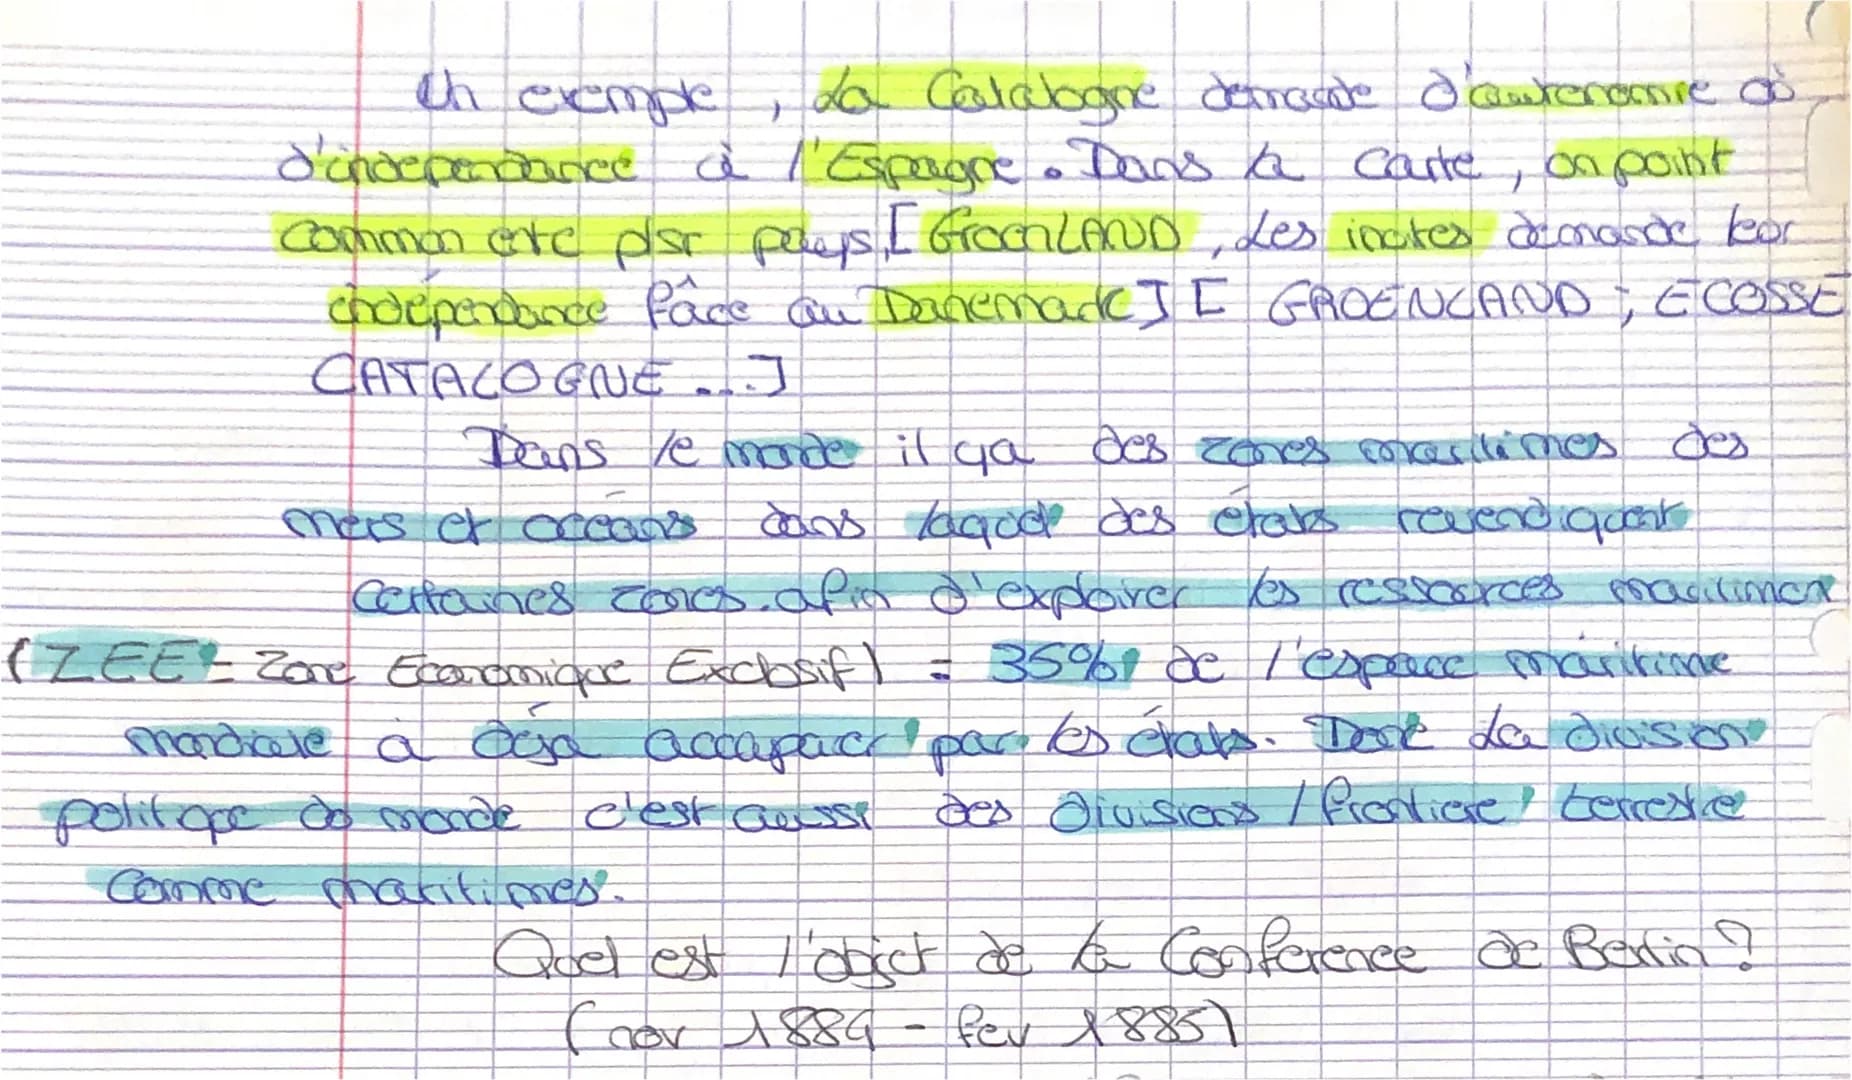 Un exemple, La Catalogne demande d'autonomie où
d'independance à l'Espagne. Dans la carte, on point
common entre plsr pays [GroenLAND, Les inuites demande leur
indépendance fâce au Danemark] [GROENLAND ; ECOSSE
CATALOGNE ...]
Dans le monde il ya des zones maritimes des
mers et océans dans laquel des états revendiquent
certaines zones afin d'exploirer les ressources maritimes
(ZEE = Zone Economique Exclusif) = 35% de l'espace maritime
mondiale à déja accaparer par les états. Dont La division
politique du monde c'est aussi des divisions / frontiere terrestre
comme maritimes.
Quel est l'objet de la Conference de Berlin ?
(nov 1884 - fev 1885)